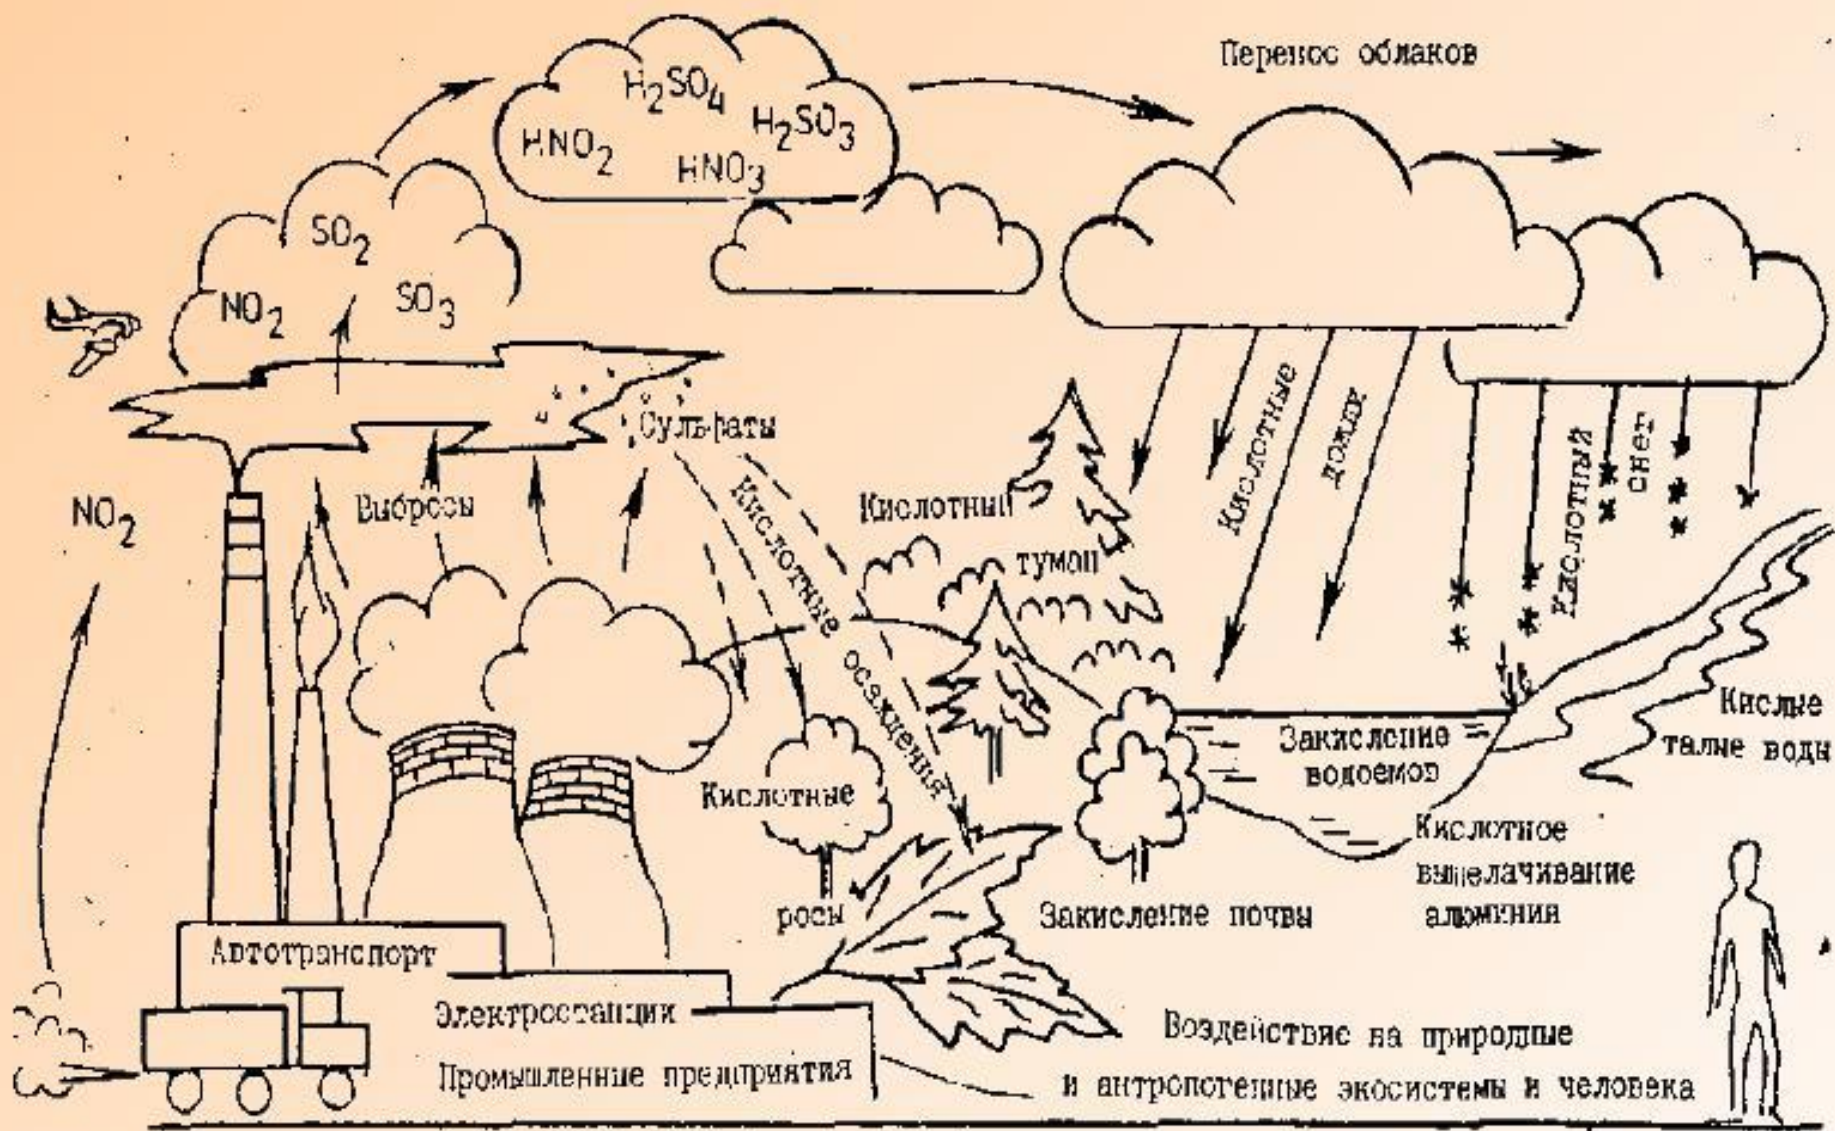 Перенос облаков
H₂SO₄
HNO₂
H₂SO₃
HNO₃
SO₂
NO₂
SO₃
Сульфаты
NO₂
Выбросы
Кислотные осаждения
Кислотный
туман
Кислотные
дожди
Кислотный
снег
Кислые
талые воды
Закисление
водоемов
Кислотные
росы
Кислотное
выщелачивание
алюминия
Закисление почвы
Автотранспорт
Электростанции
Промышленные предприятия
Воздействие на природные
и антропогенные экосистемы и человека